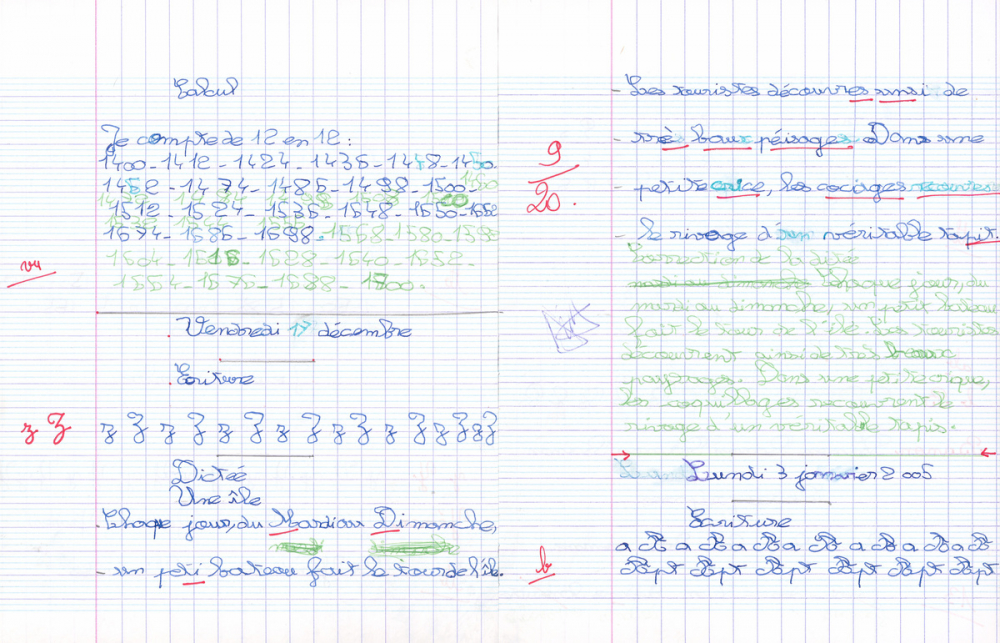 Calcul
Je compte de 12 en 12 :
1400 - 1412 - 1424 - 1436 - 1448 - 1450
1462 - 1474 - 1486 - 1498 - 1500 -
1512 - 1524 - 1536 - 1548 - 1550 - 1562
1574 - 1586 - 1598 - 1568 - 1580 - 1592
1604 - 1616 - 1628 - 1640 - 1652 -
vu
1664 - 1676 - 1688 - 1700.
Vendredi 17 décembre
Ecriture
z Z z Z z Z z Z z Z z Z z Z z Z z Z
Dictée
Une île
Chaque jour, du Mardi au Dimanche,
- un peti bateau fait le tour de l'île.
- Les touristes découvres ainsi de
- trè baux péisages. Dans une
9
20.
- petite crice, les cociages recouvres
- le rivage d'un véritable tapit.
Correction de la dictée
mardi au dimanche Chaque jour, du
mardi au dimanche, un petit bateau
fait le tour de l'île. Les touristes
découvrent ainsi de très beaux
paysages. Dans une petite crique,
les coquillages recouvrent le
rivage d'un véritable tapis.
Lundi 3 janvier 2005
Ecriture